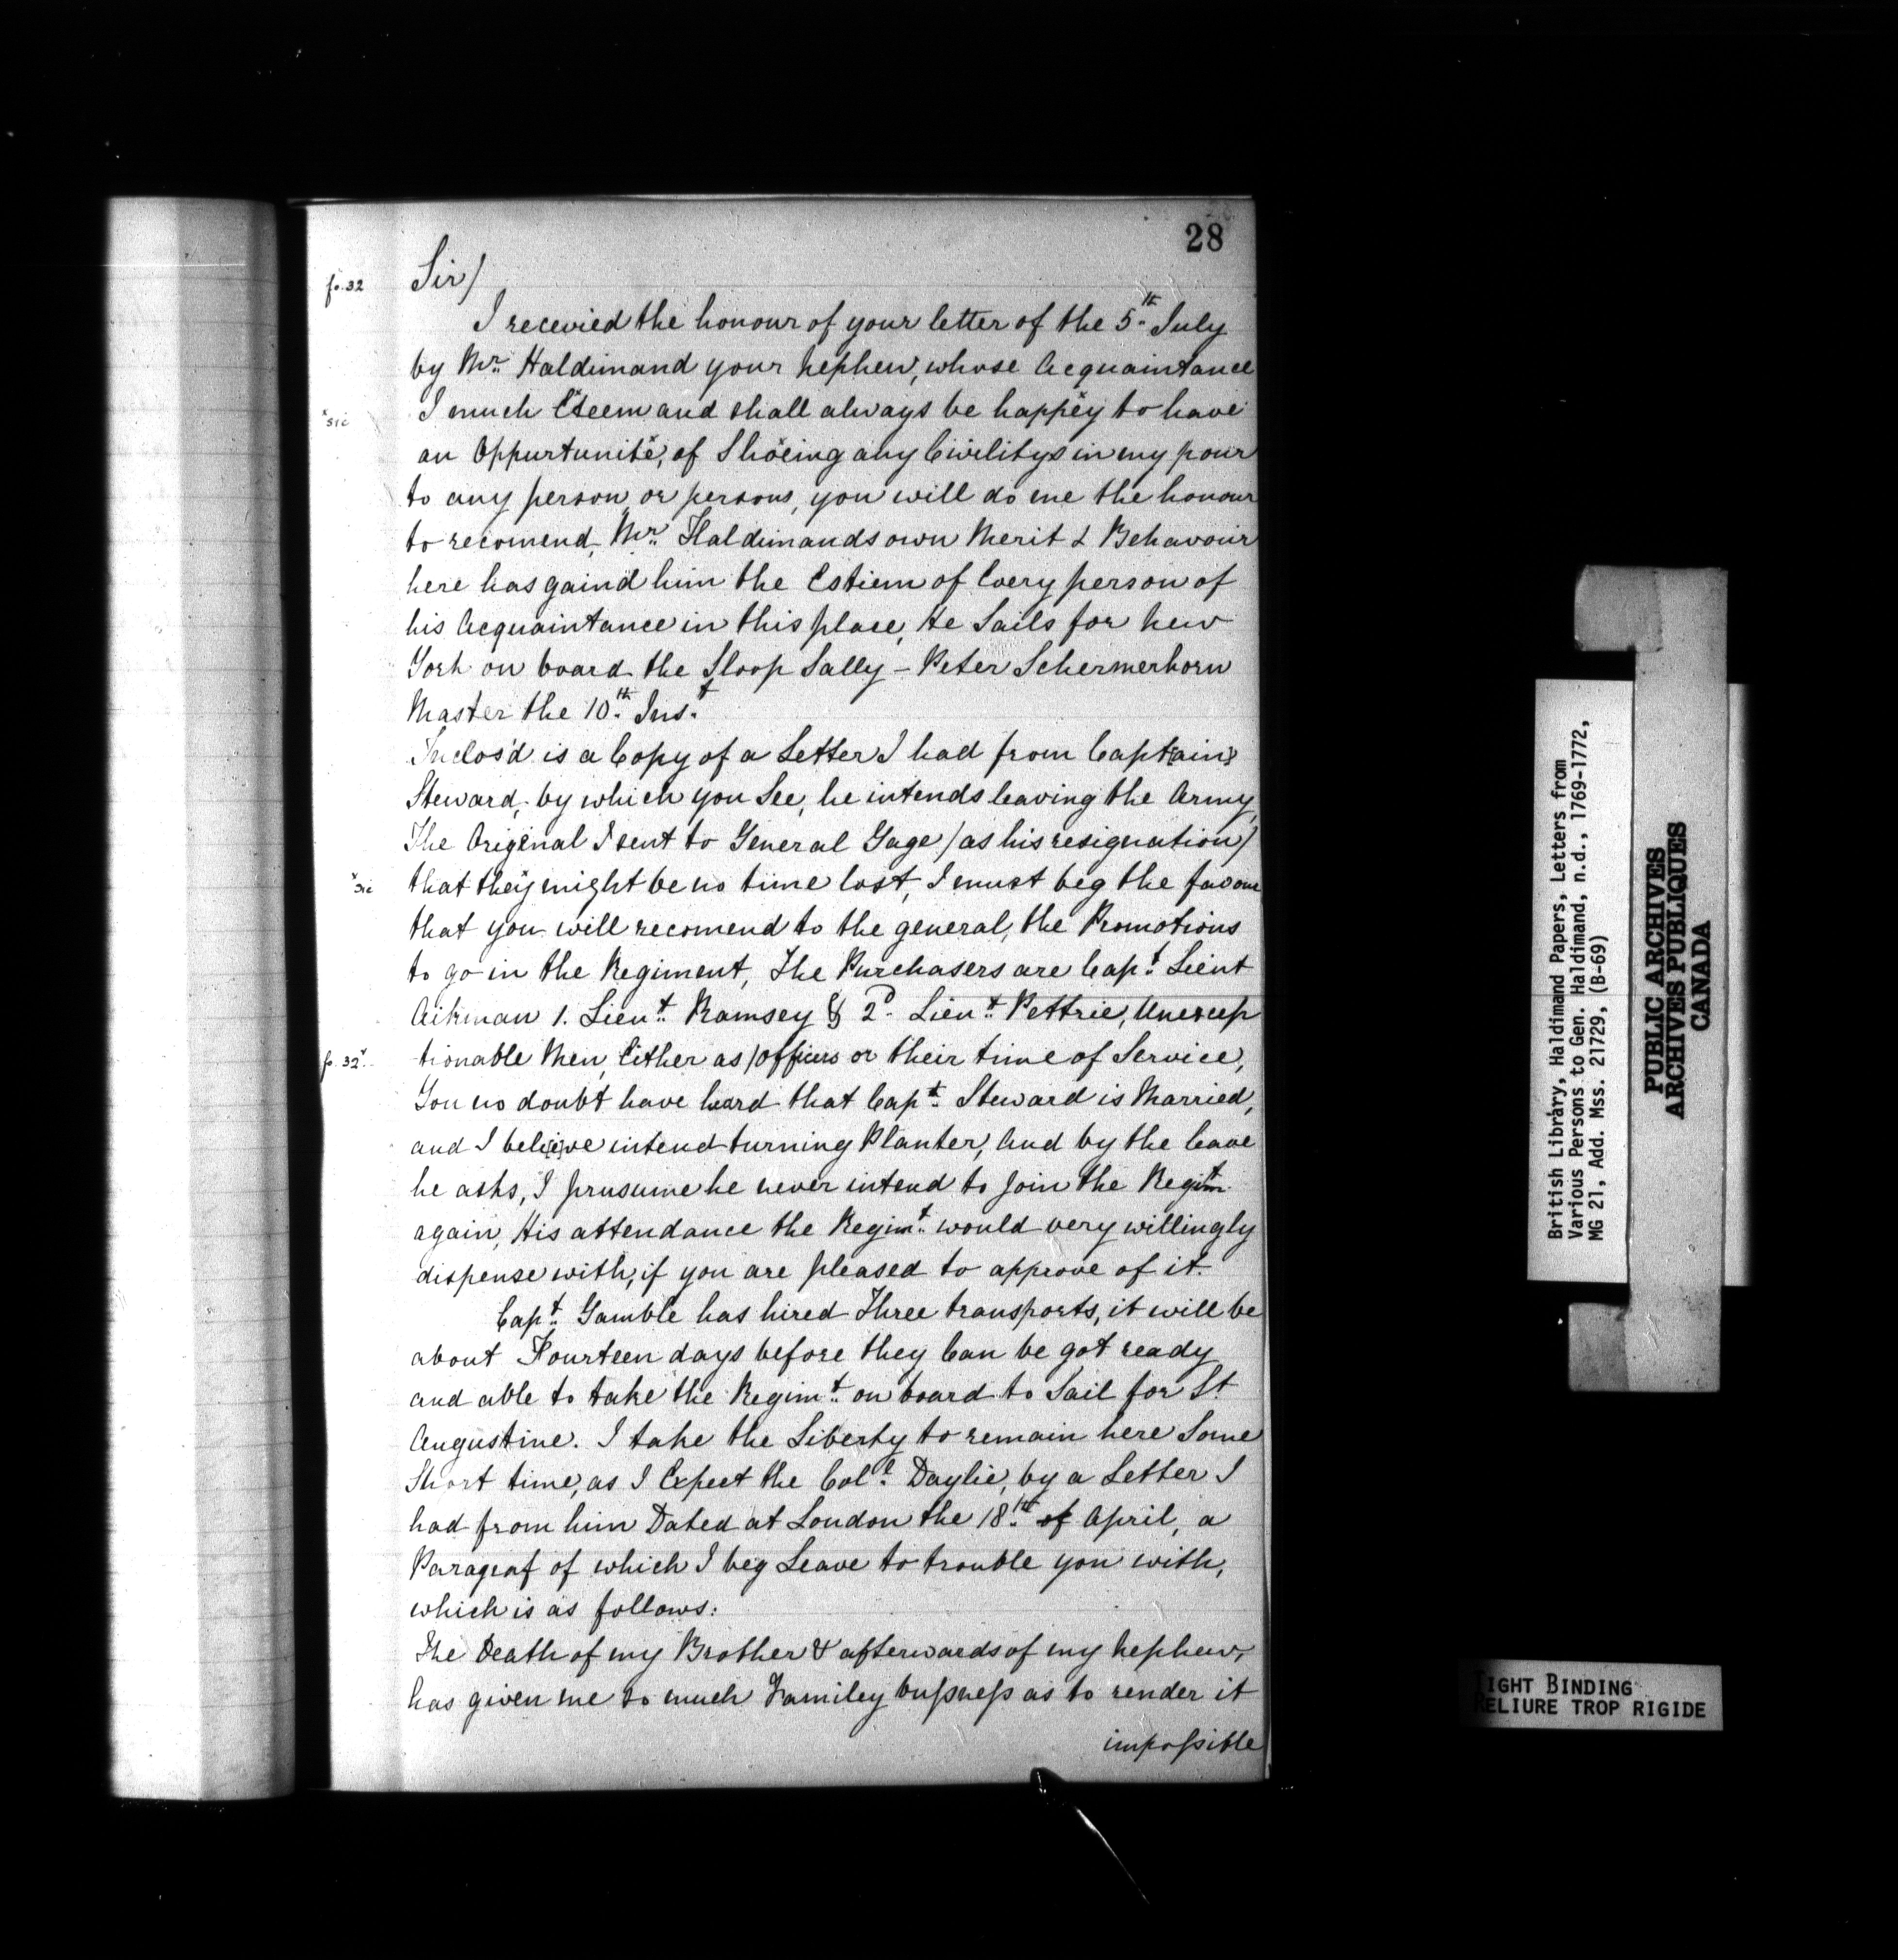 28
fo. 32
Sir/
I recevied the honour of your letter of the 5th July
by Mr. Haldimand your Nephew, whose Acquaintance
x sic
I much Esteem and shall always be happey to have
an Oppurtunite, of Shoeing any Civilitys in my pour
to any person or persons, you will do me the honour
to recomend, Mr. Haldimands own Merit & Behavour
here has gaind him the Estiem of Every person of
his Acquaintance in this place, He Sails for New
York on board the Sloop Sally - Peter Schermerhorn
Master the 10th Inst
Inclos'd is a Copy of a Letter I had from Capt[ain]
Steward, by which you See, he intends leaving the Army,
The Original I sent to General Gage /as his resignation/
x sic
that they might be no time lost, I must beg the favour
that you will recomend to the general, the Promotions
to go in the Regiment, The Purchasers are Capt Lieut
Aikman 1. Lieut Ramsey & 2d Lieut Pettrie, Unexcep
fo. 32v
tionable Men, Either as /Officers or their time of Service,
You no doubt have heard that Capt Steward is Married,
and I bel[ie]ve intend turning Planter, And by the leave
he asks, I prusume he never intend to Join the Regimt
again, His attendance the Regimt would very willingly
dispense with, if you are pleased to approve of it.
Capt Gamble has hired Three transports, it will be
about Fourteen days before they Can be got ready
and able to take the Regimt on board to Sail for St
Augustine. I take the Liberty to remain here Some
Short time, as I Expect the Coll Daylie, by a Letter I
had from him Dated at London the 18th of April, a
Paragraf of which I beg Leave to trouble you with,
which is as follows:
The Death of my Brother & afterwards of my Nephew,
has given me so much Familey bussness as to render it
impossible
British Library, Haldimand Papers, Letters from
Various Persons to Gen. Haldimand, n.d., 1769-1772,
MG 21, Add. Mss. 21729, (B-69)
PUBLIC ARCHIVES
ARCHIVES PUBLIQUES
CANADA
TIGHT BINDING
RELIURE TROP RIGIDE